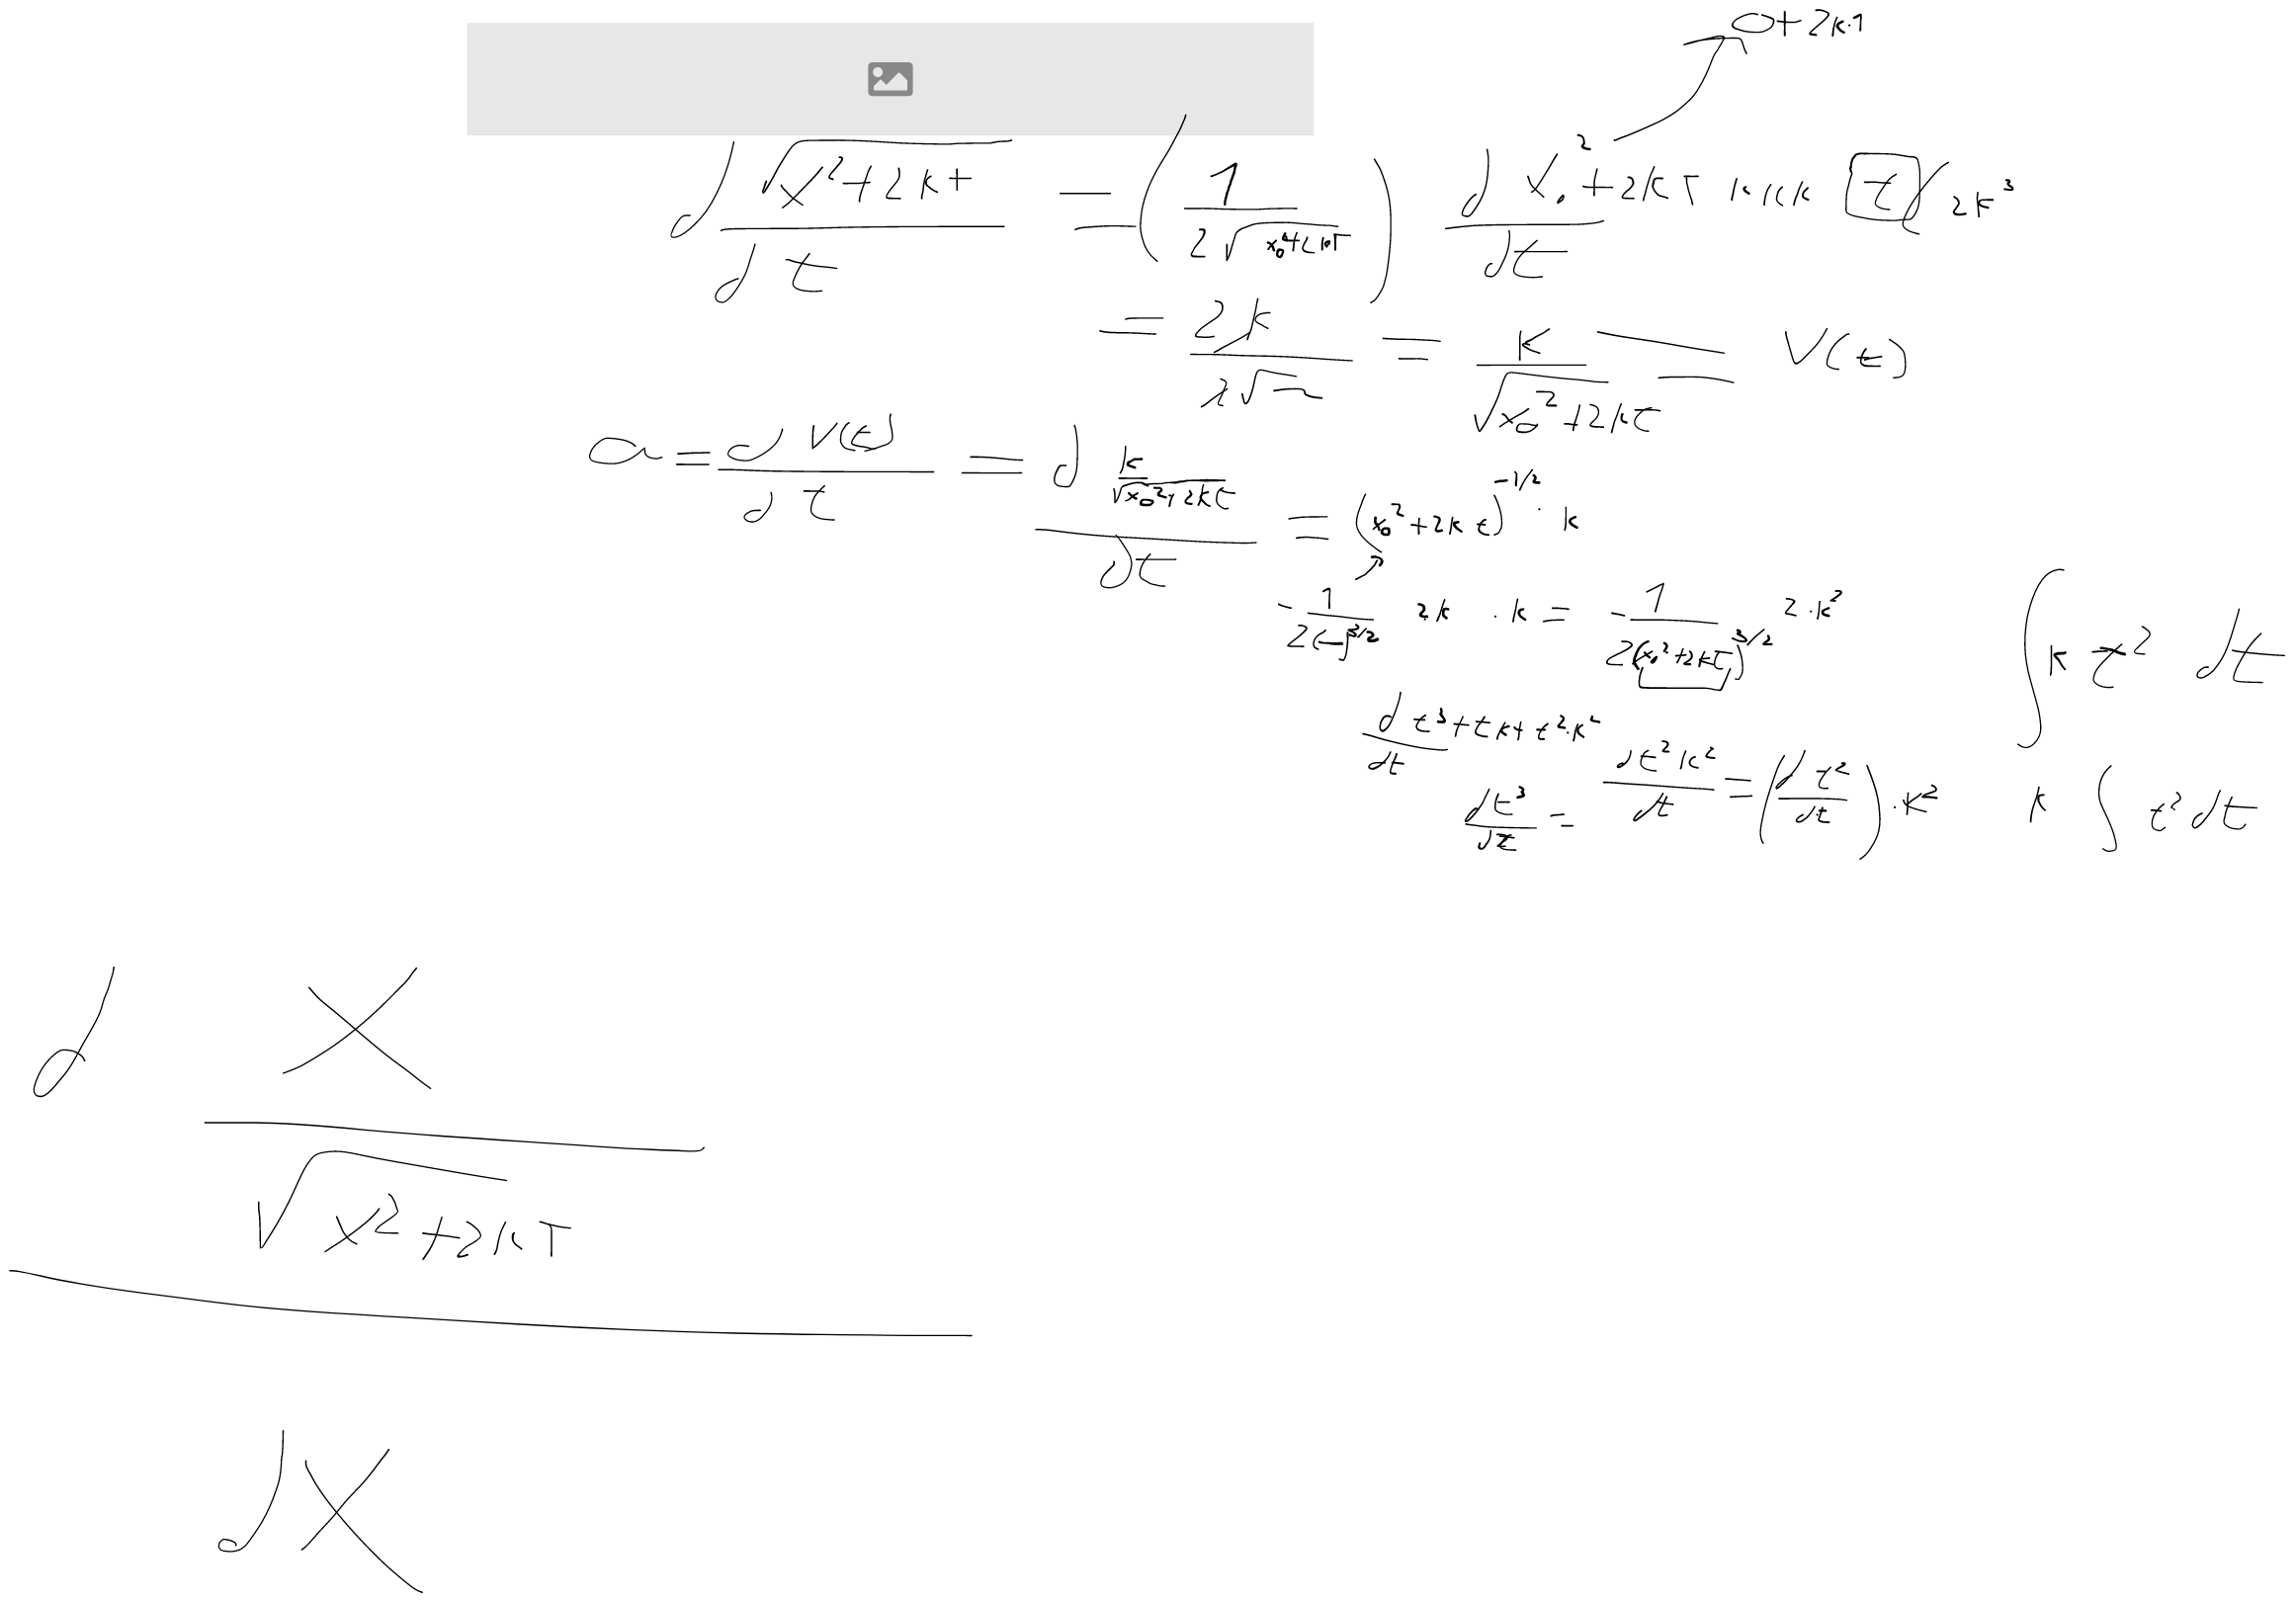 0+2k·1
d √(x²+2kt) / dt = (1 / 2√(x₀²+2kT)) d x₀²+2kT kkk t ( 2k³ / dt
= 2k / 2√~ = k / √(x₀²+2kt) = V(t)
a = d V(t) / dt = d k/√(x₀²+2kt) / dt = (x₀²+2kt)^-1/2 · k
-1 / 2(—)^3/2 2k · k = -1 / 2(x₀²+2kT)^3/2 2·k²
∫ k t² dt
d/dt t³+tk+t²·k²
dt³/dt = dt²k²/dt = (d t²/dt)·k²
k ∫ t² dt
d x / √(x²+2kT)
dx